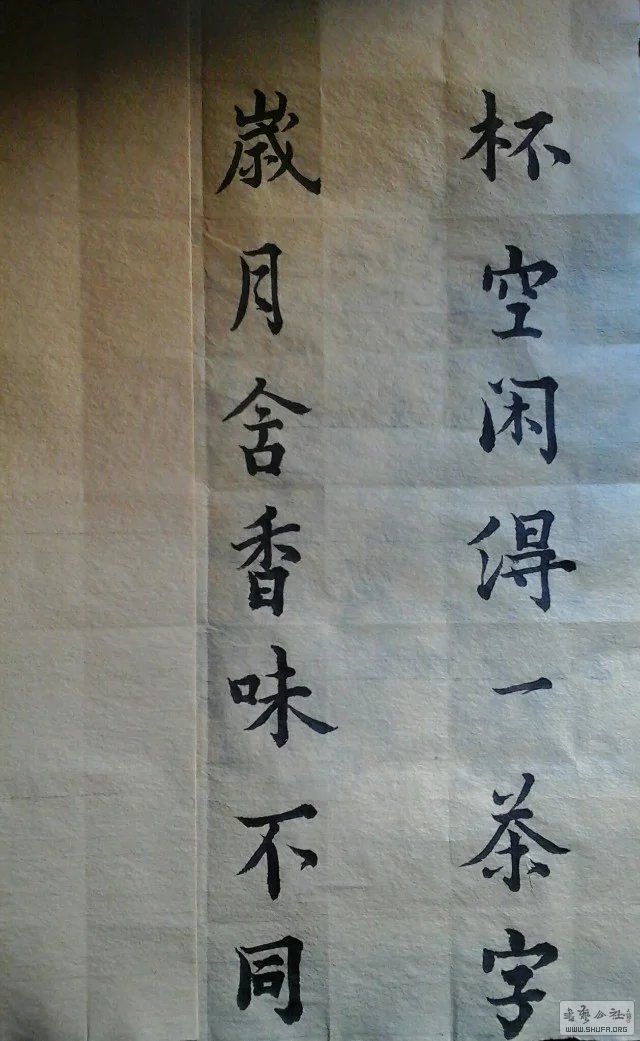 杯空闲得一茶字
歲月含香味不同
書藝公社
WWW.SHUFA.ORG